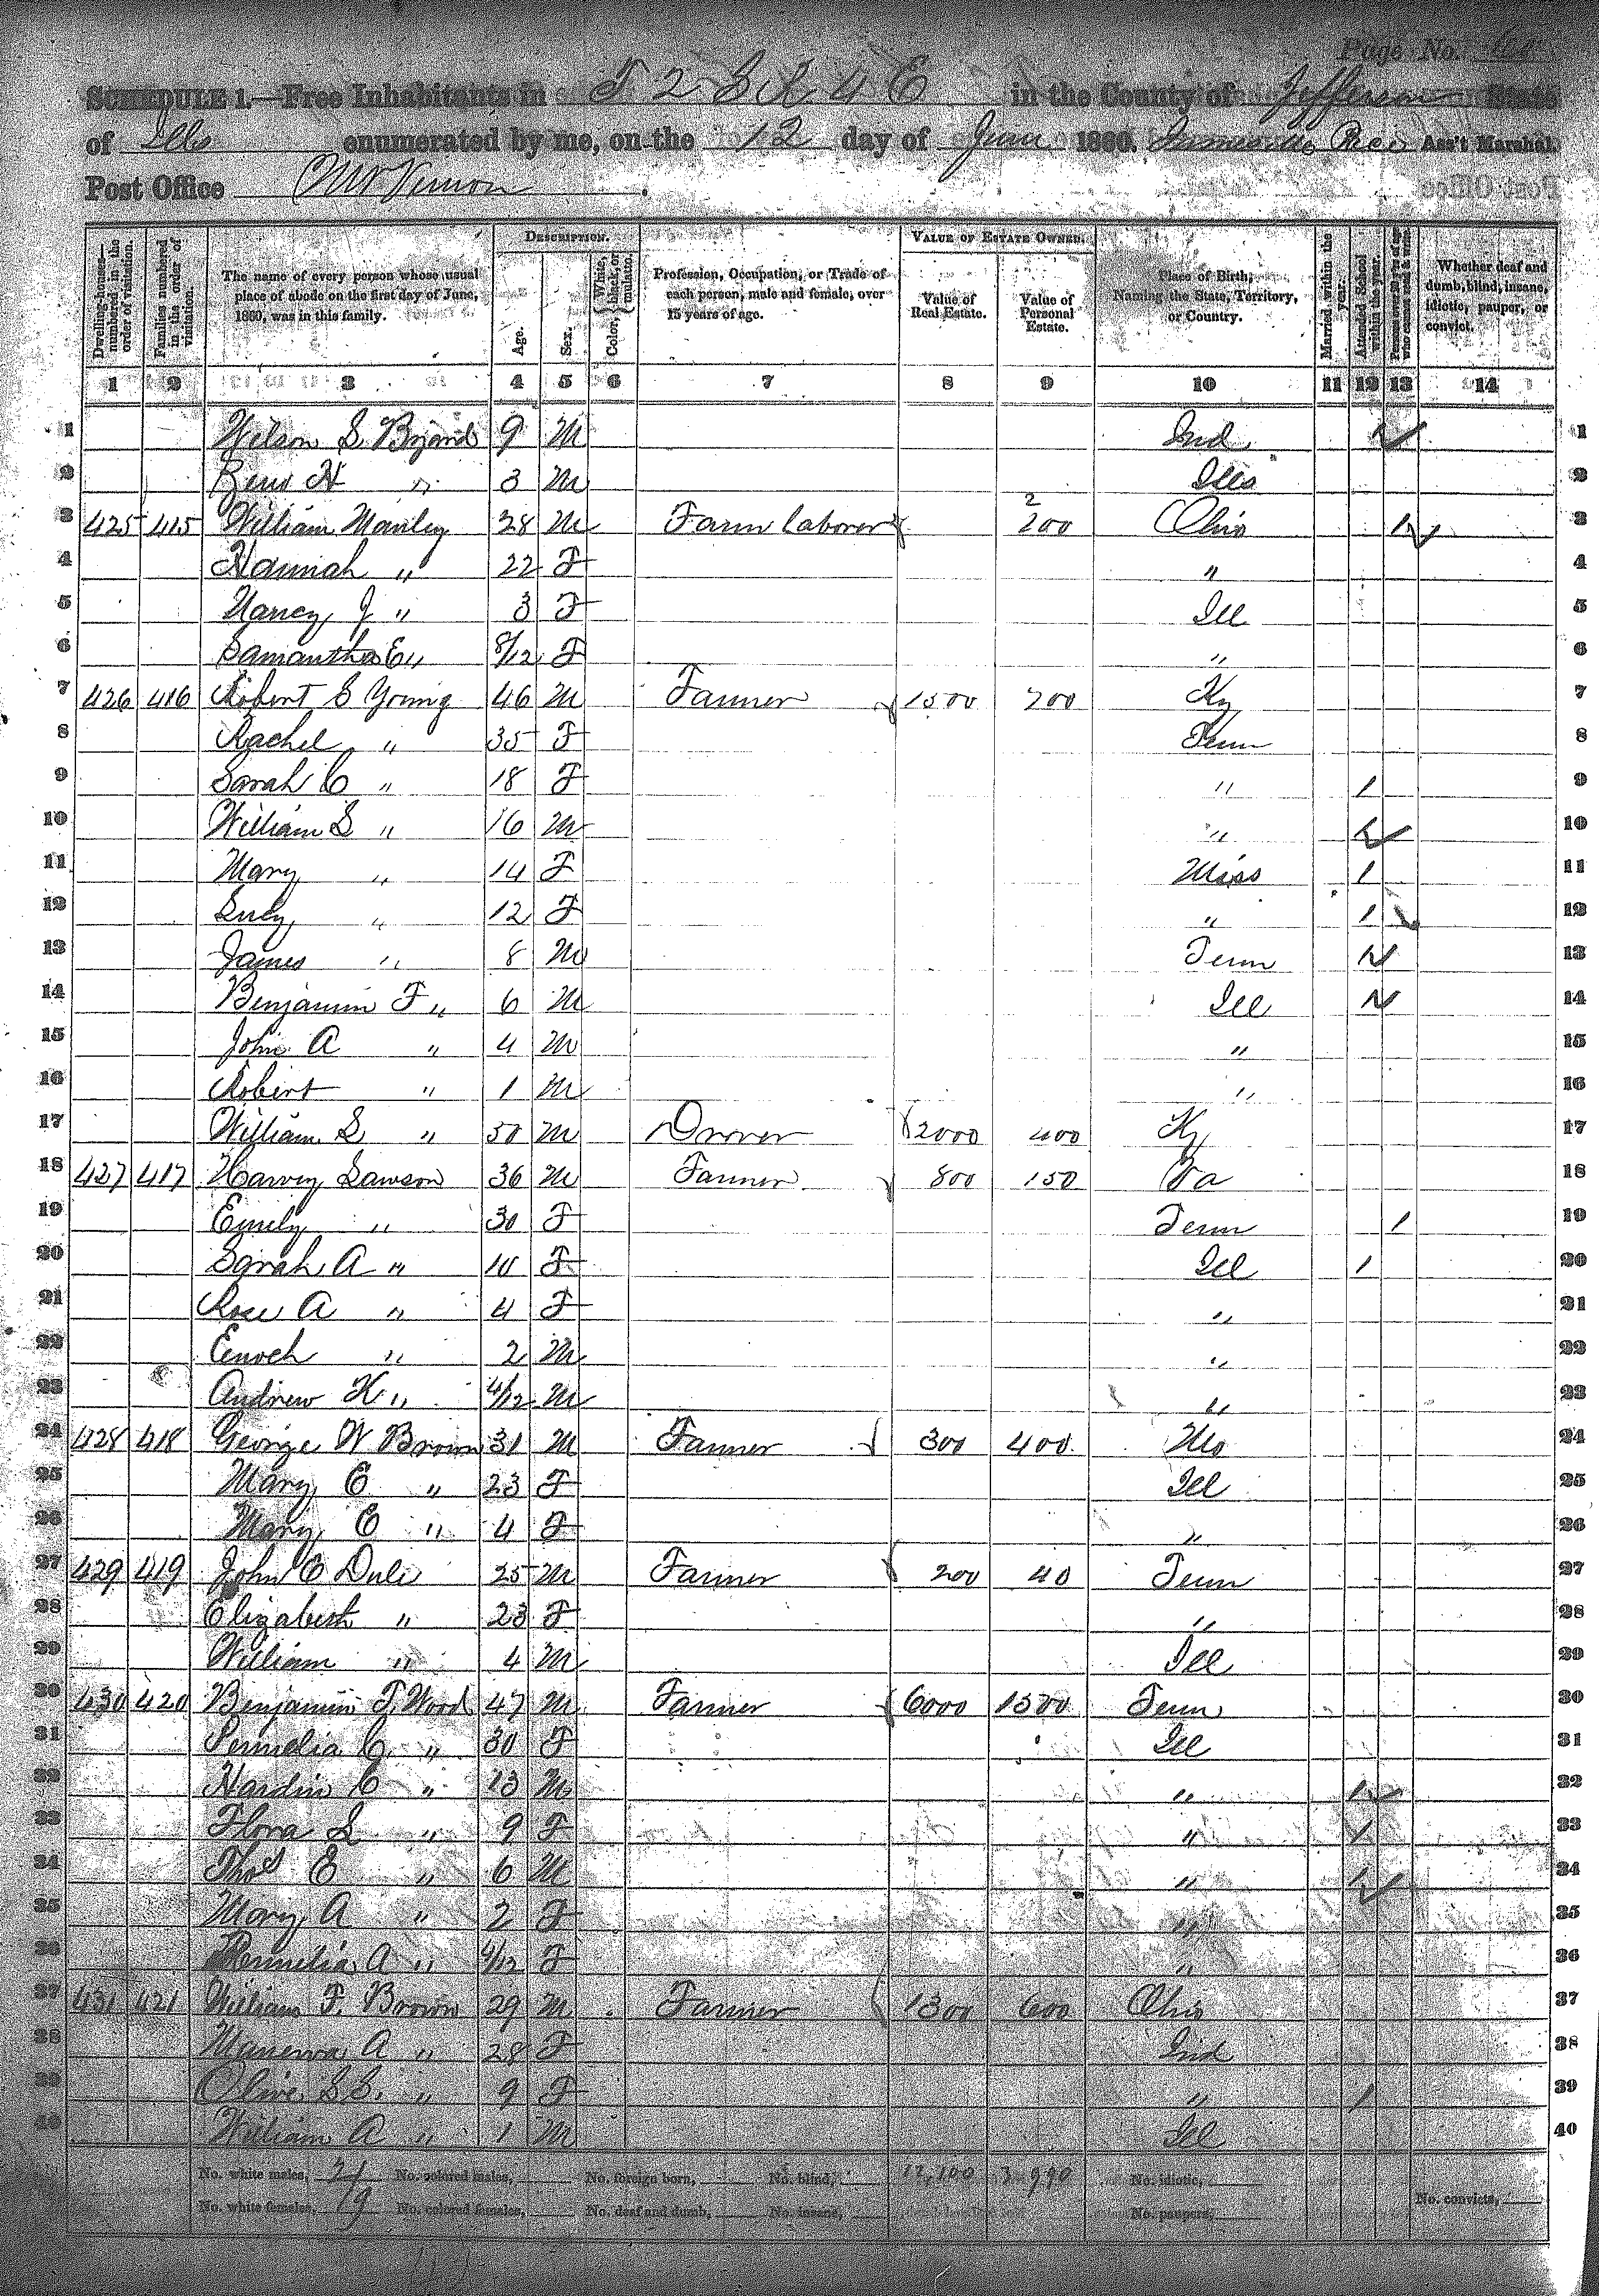 Page No. 60
SCHEDULE 1.—Free Inhabitants in T 2 S R 4 E in the County of Jefferson State
of Ills enumerated by me, on the 12 day of June 1860. Ass't Marshal.
Post Office Mt Vernon.
DESCRIPTION. VALUE OF ESTATE OWNED.
Dwelling-houses—numbered in the order of visitation. Families numbered in the order of visitation. The name of every person whose usual place of abode on the first day of June, 1860, was in this family. Age. Sex. Color, {White, black, or mulatto. Profession, Occupation, or Trade of each person, male and female, over 15 years of age. Value of Real Estate. Value of Personal Estate. Place of Birth, Naming the State, Territory, or Country. Married within the year. Attended School within the year. Persons over 20 y'rs of age who cannot read & write. Whether deaf and dumb, blind, insane, idiotic, pauper, or convict.
1 2 3 4 5 6 7 8 9 10 11 12 13 14
1 Wilson S 9 M Ind 1
2 H " 3 M Ills 2
3 425 415 William Manley 28 M Farm laborer 200 Ohio 1 3
4 Hannah " 22 F " 4
5 Nancy J " 3 F Ill 5
6 Samantha E " 8/12 F " 6
7 426 416 Robert S Young 46 M Farmer 1500 200 Ky 7
8 Rachel " 35 F Tenn 8
9 Sarah C " 18 F " 1 9
10 William S " 16 M " 1 10
11 Mary " 14 F Miss 1 11
12 Lucy " 12 F " 1 12
13 James " 8 M Tenn 1 13
14 Benjamin F " 6 M Ill 1 14
15 John A " 4 M " 15
16 Robert " 1 M " 16
17 William S " 50 M Drover 2000 400 Ky 17
18 427 417 Harvey Lawson 36 M Farmer 800 150 Va 18
19 Emily " 30 F Tenn 1 19
20 Sarah A " 10 F Ill 1 20
21 Rose A " 4 F " 21
22 Enoch " 2 M " 22
23 Andrew H " 4/12 M " 23
24 428 418 George W Brown 31 M Farmer 300 400 Mo 24
25 Mary E " 23 F Ill 25
26 Mary E " 4 F " 26
27 429 419 John E 25 M Farmer 200 40 Tenn 27
28 Elizabeth " 23 F " 28
29 William " 4 M Ill 29
30 430 420 Benjamin T. Wood 47 M Farmer 6000 1500 Tenn 30
31 Permelia C. " 30 F Ill 31
32 Hardin C " 13 M " 1 32
33 Flora L " 9 F " 1 33
34 Thos E " 6 M " 1 34
35 Mary A " 2 F " 35
36 Permelia A " 4/12 F " 36
37 431 421 William F. Brown 29 M Farmer 1300 600 Ohio 37
38 Manerva A " 28 F Ind 38
39 Olive S S. " 9 F " 1 39
40 William A " 1 M Ill 40
No. white males, 21 No. colored males, No. foreign born, No. blind, 12,100 3 990 No. idiotic,
No. white females, 19 No. colored females, No. deaf and dumb, No. insane, No. paupers, No. convicts,